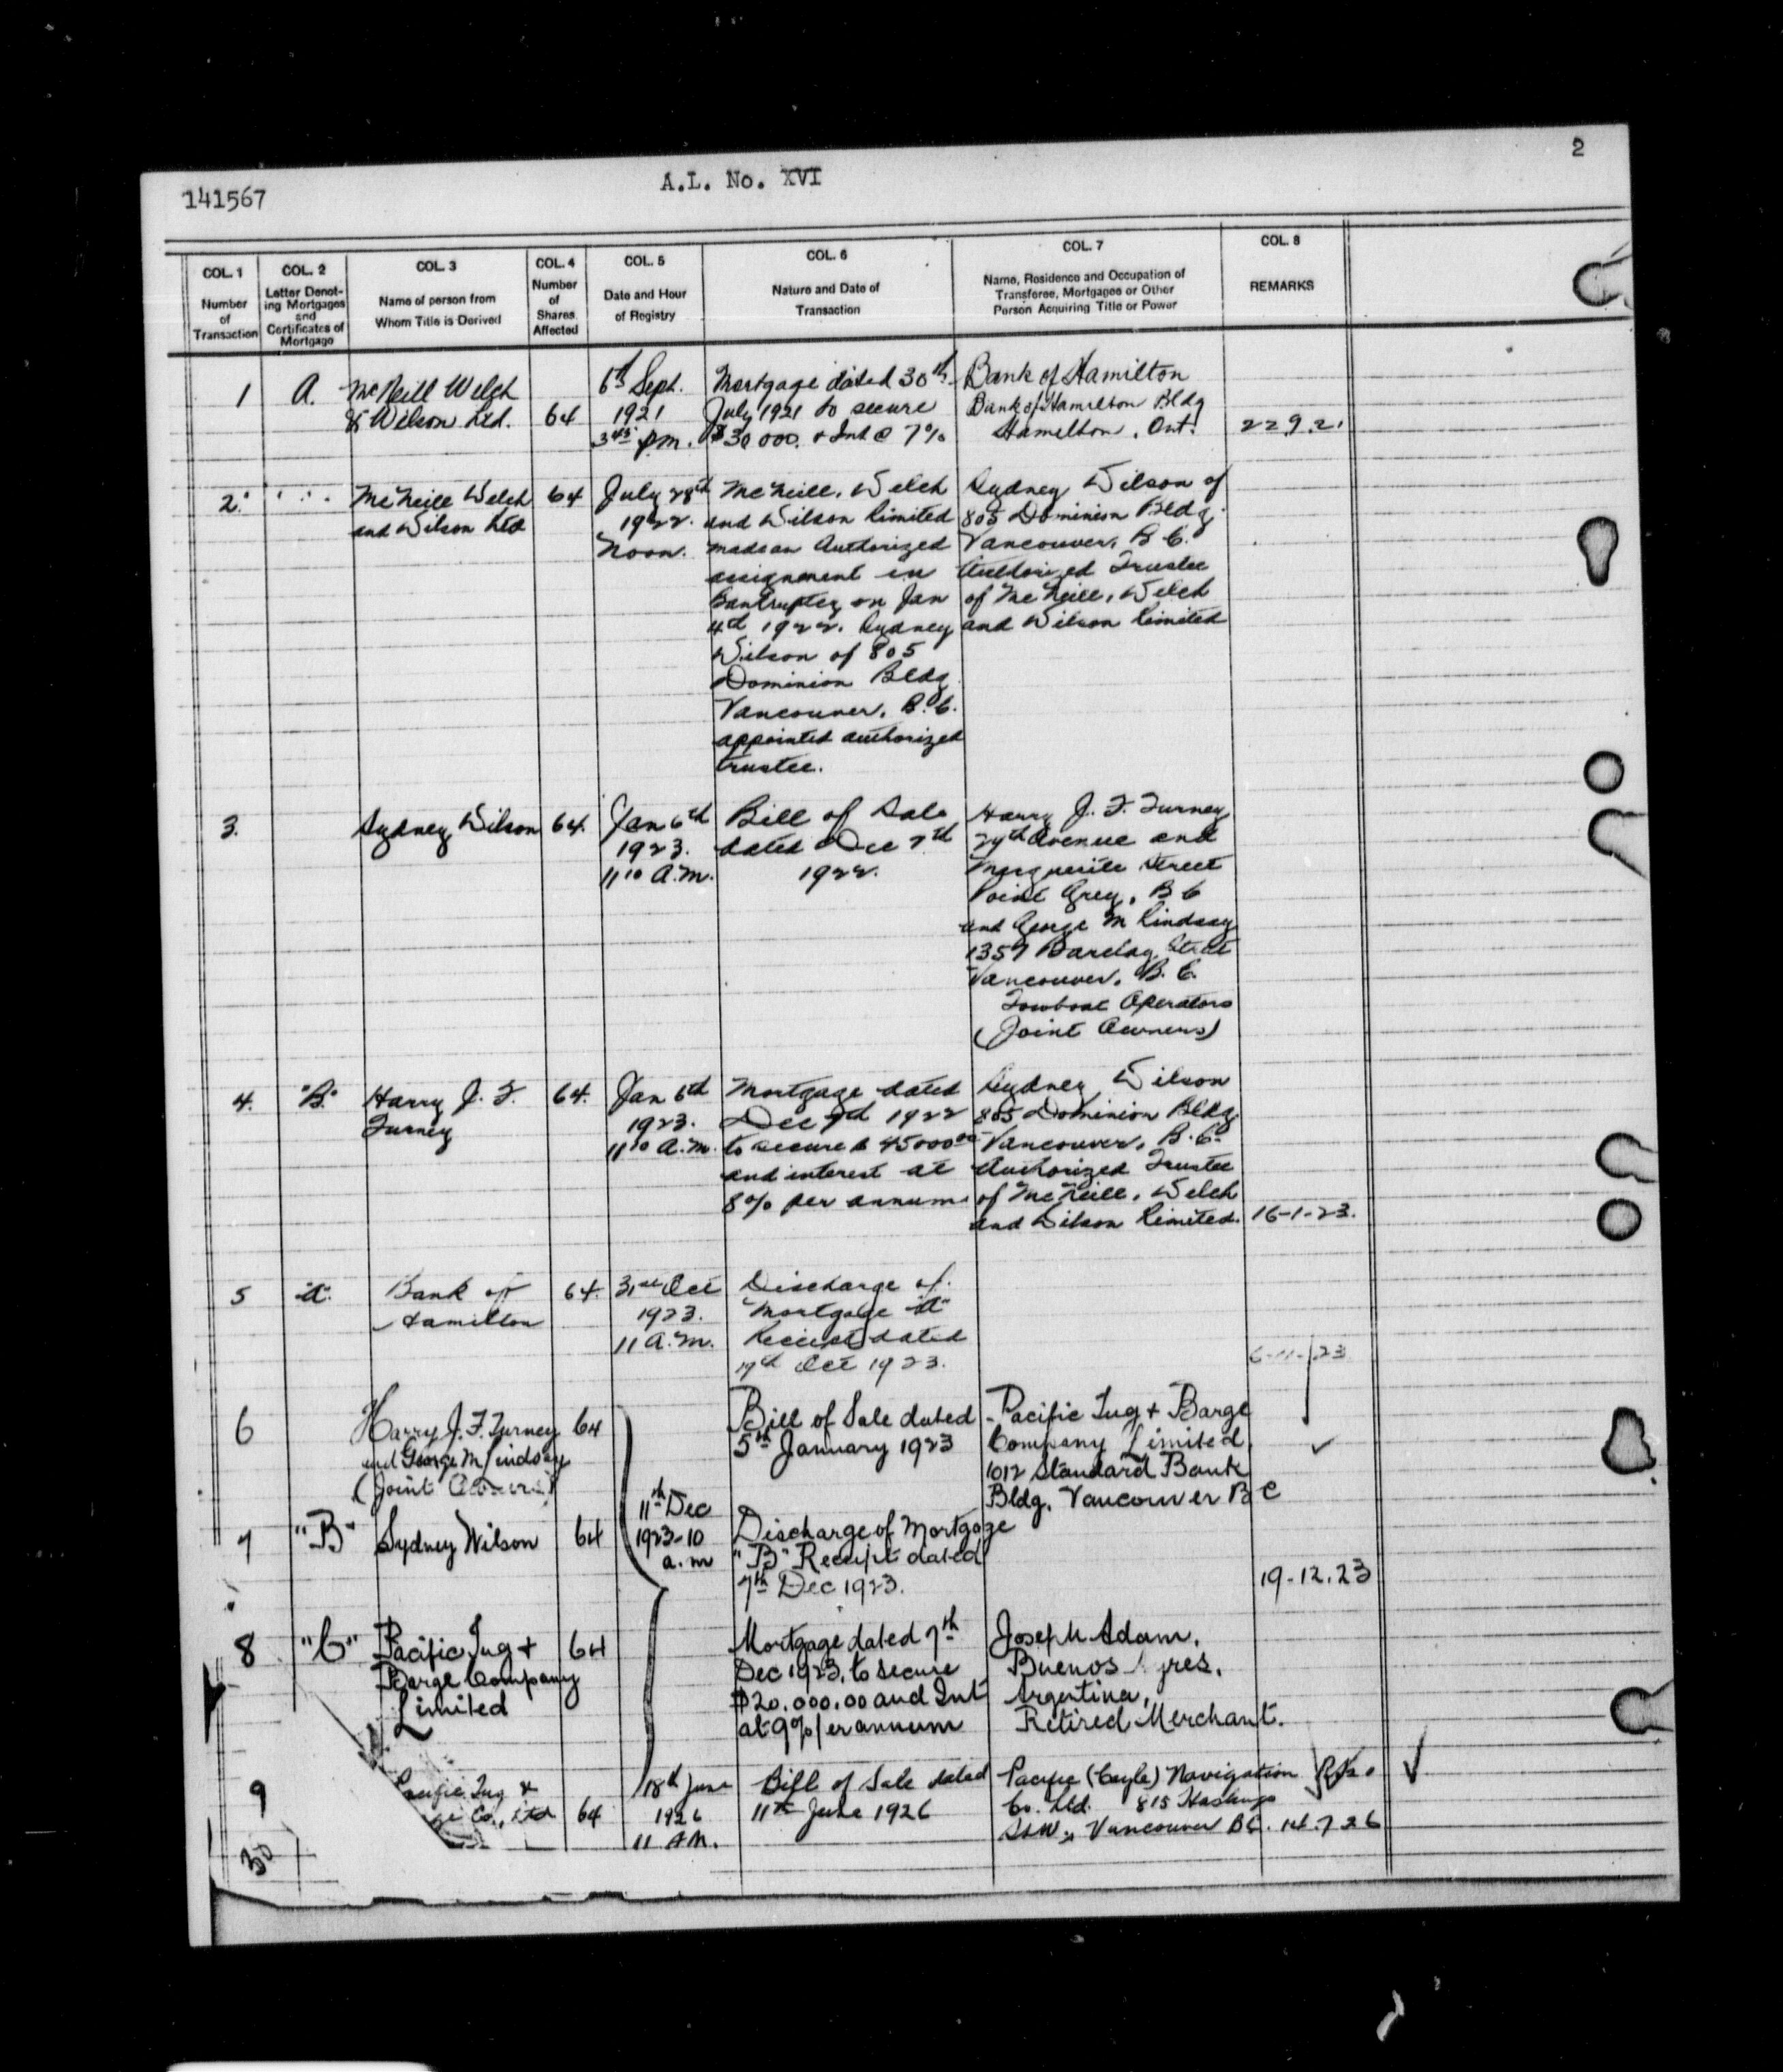 141567
A.L. No. XVI
2
COL. 1
Number
of
Transaction
COL. 2
Letter Denot-
ing Mortgages
and
Certificates of
Mortgage
COL. 3
Name of person from
Whom Title is Derived
COL. 4
Number
of
Shares
Affected
COL. 5
Date and Hour
of Registry
COL. 6
Nature and Date of
Transaction
COL. 7
Name, Residence and Occupation of
Transferee, Mortgagee or Other
Person Acquiring Title or Power
COL. 8
REMARKS
1
A.
McNeill Welch
& Wilson Ltd.
64
6th Sept.
1921
3 45 p.m.
Mortgage dated 30th
July 1921 to secure
$30 000. & Int @ 7%
Bank of Hamilton
Bank of Hamilton Bldg
Hamilton, Ont.
22.9.21
2.
McNeill Welch
and Wilson Ltd
64
July 28th
1922.
Noon.
McNeill, Welch
and Wilson Limited
made an Authorized
assignment in
Bankruptcy on Jan
4th 1922. Sydney
Wilson of 805
Dominion Bldg
Vancouver, B.C.
appointed authorized
trustee.
Sydney Wilson of
805 Dominion Bldg.
Vancouver, B.C.
Authorized Trustee
of McNeill, Welch
and Wilson Limited
3.
Sydney Wilson
64.
Jan 6th
1923.
11 10 A.M.
Bill of Sale
dated Dec 7th
1922.
Harry J. F. Turney
29th Avenue and
Marguerite Street
Point Grey, B C
and George M Lindsay
1359 Barclay Street
Vancouver, B. C.
Towboat Operators
(Joint Owners)
4.
"B."
Harry J. F.
Turney
64.
Jan 6th
1923.
11 10 A.M.
Mortgage dated
Dec 7th 1922
to secure $ 45000 00
and interest at
8% per annum.
Sydney Wilson
805 Dominion Bldg
Vancouver, B.C.
Authorized Trustee
of McNeill, Welch
and Wilson Limited.
16-1-23.
5
"A".
Bank of
Hamilton
64.
31st Oct
1923.
11 A.M.
Discharge of
Mortgage "A"
Receipt dated
Oct 1923.
6-11-23
6
Harry J. F. Turney
and George M Lindsay
(Joint Owners)
64
Bill of Sale dated
5th January 1923
Pacific Tug & Barge
Company Limited,
1012 Standard Bank
Bldg, Vancouver B C
11th Dec
1923-10
a.m
7
"B"
Sydney Wilson
64
Discharge of Mortgage
"B" Receipt dated
7th Dec 1923.
19-12.23
8
"C"
Pacific Tug &
Barge Company
Limited
64
Mortgage dated 7th
Dec 1923, to secure
$20.000.00 and Int
at 9% per annum
Joseph Adam,
Buenos Ayres,
Argentina,
Retired Merchant.
9
Pacific Tug &
Co., Ltd
64
18th June
1926
11 AM.
Bill of Sale dated
11th June 1926
Pacific (Coyle) Navigation
Co. Ltd. 815 Hastings
St W., Vancouver BC.
14.7.26
30